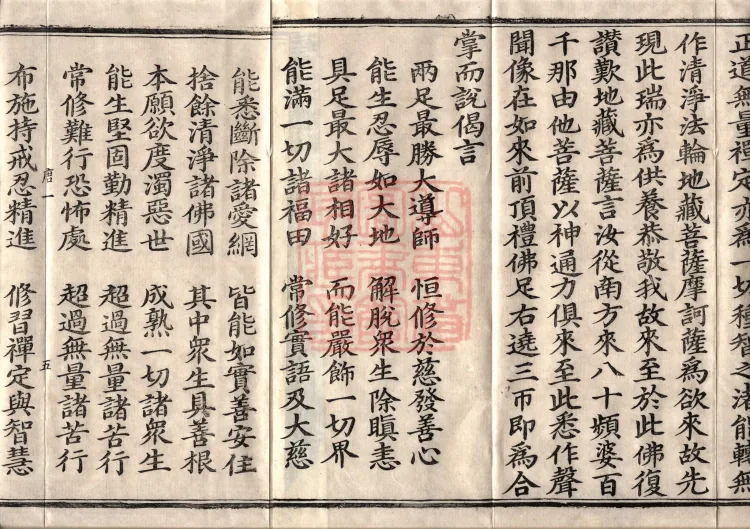 正道無量禪定亦爲一切種智之渚能轉無
作清淨法輪地藏菩薩摩訶薩爲欲來故先
現此瑞亦爲供養恭敬我故來至於此佛復
讃歎地藏菩薩言汝從南方來八十頻婆百
千那由他菩薩以神通力俱來至此悉作聲
聞像在如來前頂禮佛足右遶三帀即爲合
掌而說偈言
兩足最勝大導師 恒修於慈發善心
能生忍辱如大地 解脫衆生除瞋恚
具足最大諸相好 而能嚴飾一切界
能滿一切諸福田 常修實語及大慈
能悉斷除諸愛網 皆能如實善安住
捨餘清淨諸佛國 其中衆生具善根
本願欲度濁惡世 成熟一切諸衆生
能生堅固勤精進 超過無量諸苦行
常修難行恐怖處 超過無量諸苦行
唐一 五
布施持戒忍精進 修習禪定與智慧